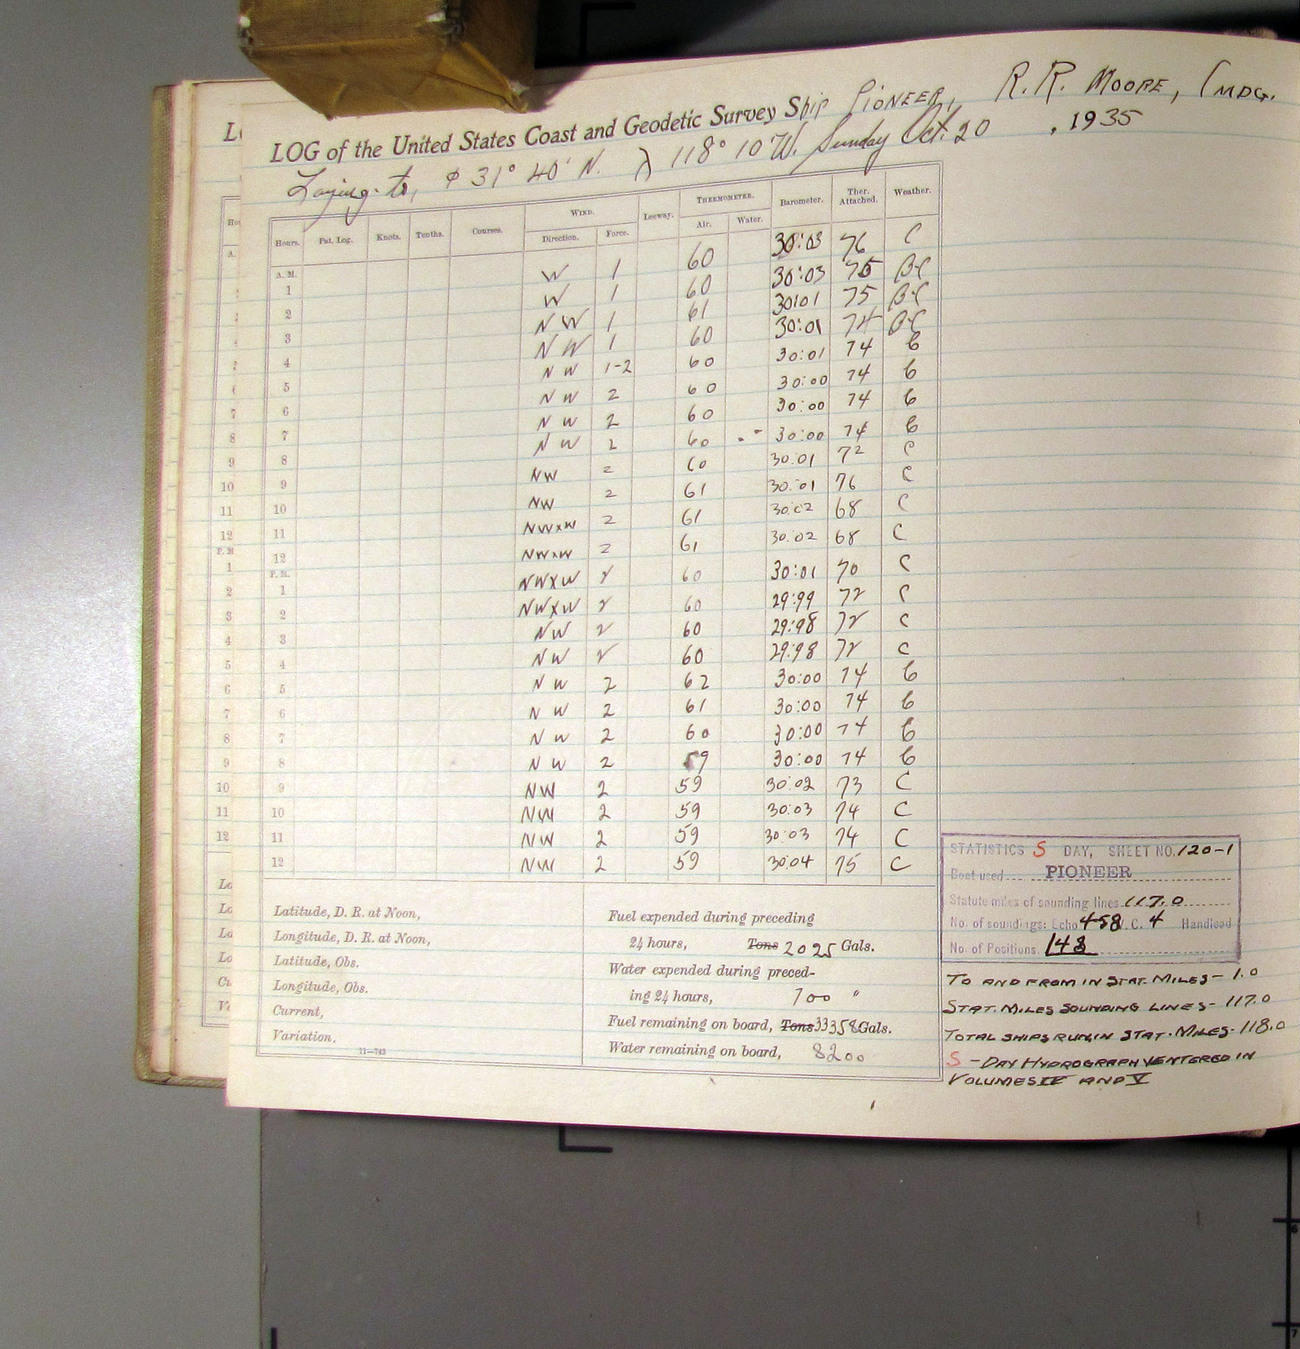 LOG of the United States Coast and Geodetic Survey Ship PIONEER, R. R. MOORE, CMDG.
Laying-to, φ 31° 40' N. λ 118° 10' W. Sunday Oct. 20, 1935
Hours. Pat. Log. Knots. Tenths. Courses. WIND. Direction. Force. Leeway. THERMOMETER. Air. Water. Barometer. Ther. Attached. Weather.
A. M.
1 W 1 60 30:03 76 C
2 W 1 60 30:03 75 B-C
3 NW 1 61 30:01 75 B-C
4 NW 1 60 30:01 74 B-C
5 NW 1-2 60 30:01 74 C
6 NW 2 60 30:00 74 C
7 NW 2 60 30:00 74 C
8 NW 2 60 30:00 74 C
9 NW 2 60 30.01 72 C
10 NW 2 61 30.01 76 C
11 NWxW 2 61 30.02 68 C
12 NWxW 2 61 30.02 68 C
P. M.
1 NWXW 2 60 30:01 70 C
2 NWXW 2 60 29:99 72 C
3 NW 2 60 29:98 72 C
4 NW 2 60 29:98 72 C
5 NW 2 62 30:00 74 C
6 NW 2 61 30:00 74 C
7 NW 2 60 30:00 74 C
8 NW 2 59 30:00 74 C
9 NW 2 59 30:02 73 C
10 NW 2 59 30:03 74 C
11 NW 2 59 30:03 74 C
12 NW 2 59 30:04 75 C
Latitude, D. R. at Noon,
Longitude, D. R. at Noon,
Latitude, Obs.
Longitude, Obs.
Current,
Variation.
11-743
Fuel expended during preceding
24 hours, Tons 2025 Gals.
Water expended during preced-
ing 24 hours, 700 "
Fuel remaining on board, Tons 33358 Gals.
Water remaining on board, 8200
STATISTICS S DAY, SHEET NO. 120-1
Boat used PIONEER
Statute miles of sounding lines 117.0
No. of soundings: Echo 458 V.C. 4 Handlead
No. of Positions 148
TO AND FROM IN STAT. MILES - 1.0
STAT. MILES SOUNDING LINES - 117.0
TOTAL SHIPS RUN IN STAT. MILES - 118.0
S - DAY HYDROGRAPHY ENTERED IN
VOLUMES IV AND V